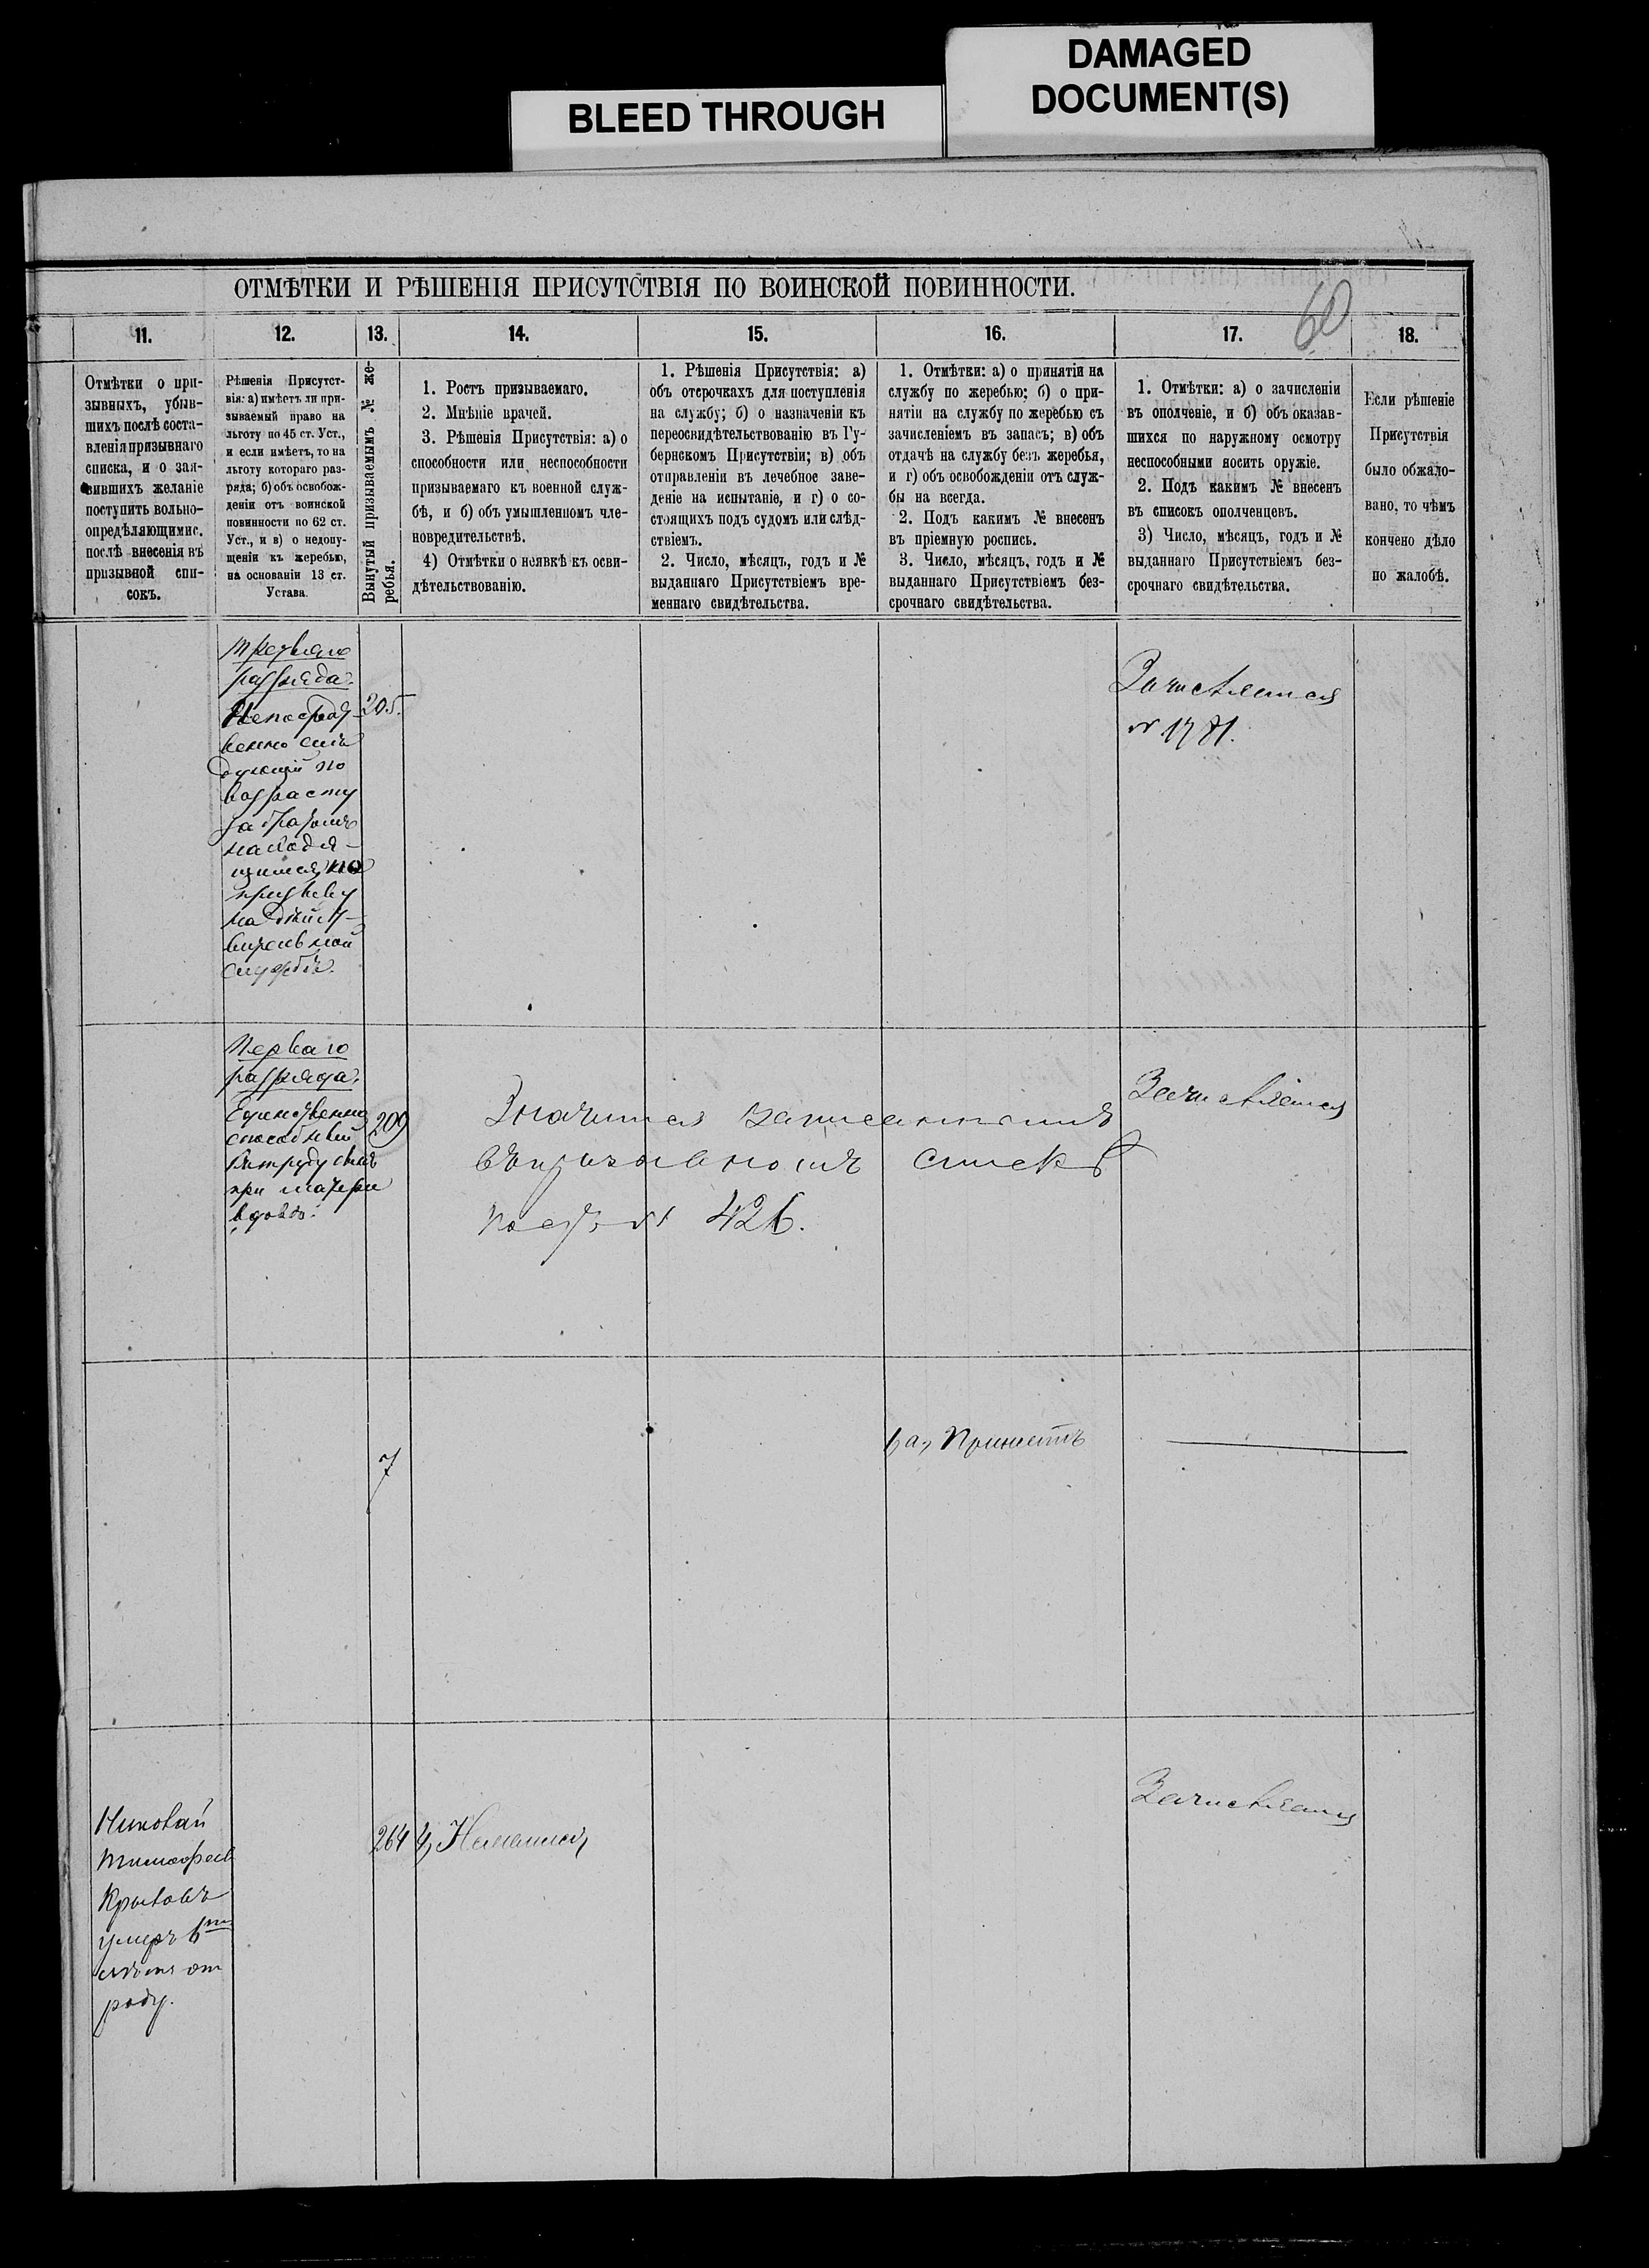 DAMAGED
DOCUMENT(S)
BLEED THROUGH
ОТМѢТКИ И РѢШЕНІЯ ПРИСУТСТВІЯ ПО ВОИНСКОЙ ПОВИННОСТИ.
60
11.
Отмѣтки о при-
зывныхъ, убыв-
шихъ послѣ соста-
вленія призывнаго
списка, и о зая-
вившихъ желаніе
поступить вольно-
опредѣляющимис.
послѣ внесенія въ
призывной спи-
сокъ.
12.
Рѣшенія Присутст-
вія: а) имѣетъ ли при-
зываемый право на
льготу по 45 ст. Уст.,
и если имѣетъ, то на
льготу котораго раз-
ряда; б) объ освобож-
деніи отъ воинской
повинности по 62 ст.
Уст., и в) о недопу-
щеніи къ жеребью,
на основаніи 13 ст.
Устава.
13.
Вынутый призываемымъ № же-
ребья.
14.
1. Ростъ призываемаго.
2. Мнѣніе врачей.
3. Рѣшенія Присутствія: а) о
способности или неспособности
призываемаго къ военной служ-
бѣ, и б) объ умышленномъ чле-
новредительствѣ.
4) Отмѣтки о неявкѣ къ осви-
дѣтельствованію.
15.
1. Рѣшенія Присутствія: а)
объ отсрочкахъ для поступленія
на службу; б) о назначеніи къ
переосвидѣтельствованію въ Гу-
бернскомъ Присутствіи; в) объ
отправленіи въ лечебное заве-
деніе на испытаніе, и г) о со-
стоящихъ подъ судомъ или слѣд-
ствіемъ.
2. Число, мѣсяцъ, годъ и №
выданнаго Присутствіемъ вре-
меннаго свидѣтельства.
16.
1. Отмѣтки: а) о принятіи на
службу по жеребью; б) о при-
нятіи на службу по жеребью съ
зачисленіемъ въ запасъ; в) объ
отдачѣ на службу безъ жеребья,
и г) объ освобожденіи отъ служ-
бы на всегда.
2. Подъ какимъ № внесенъ
въ пріемную роспись.
3. Число, мѣсяцъ, годъ и №
выданнаго Присутствіемъ без-
срочнаго свидѣтельства.
17.
1. Отмѣтки: а) о зачисленіи
въ ополченіе, и б) объ оказав-
шихся по наружному осмотру
неспособными носить оружіе.
2. Подъ какимъ № внесенъ
въ списокъ ополченцевъ.
3) Число, мѣсяцъ, годъ и №
выданнаго Присутствіемъ без-
срочнаго свидѣтельства.
18.
Если рѣшеніе
Присутствія
было обжало-
вано, то чѣмъ
кончено дѣло
по жалобѣ.
третьяго
разряда.
Непосредст-
венно слѣ
дующій по
возрасту
за братомъ
находя-
щимся по
призыву
на дѣйст-
вительной
службѣ.
205.
Зачисляется
№ 1781.
Перваго
разряда.
Единственно
способный
къ труду сынъ
при матери
вдовѣ.
209
Значится записаннымъ
въ призывномъ спискѣ
подъ № 426.
Зачисляется
7
1, а, Принять
Николай
Тимофеев
Крыловъ
умеръ 6ти
лѣтъ от
роду.
264
4, Неявился,
Зачисляется